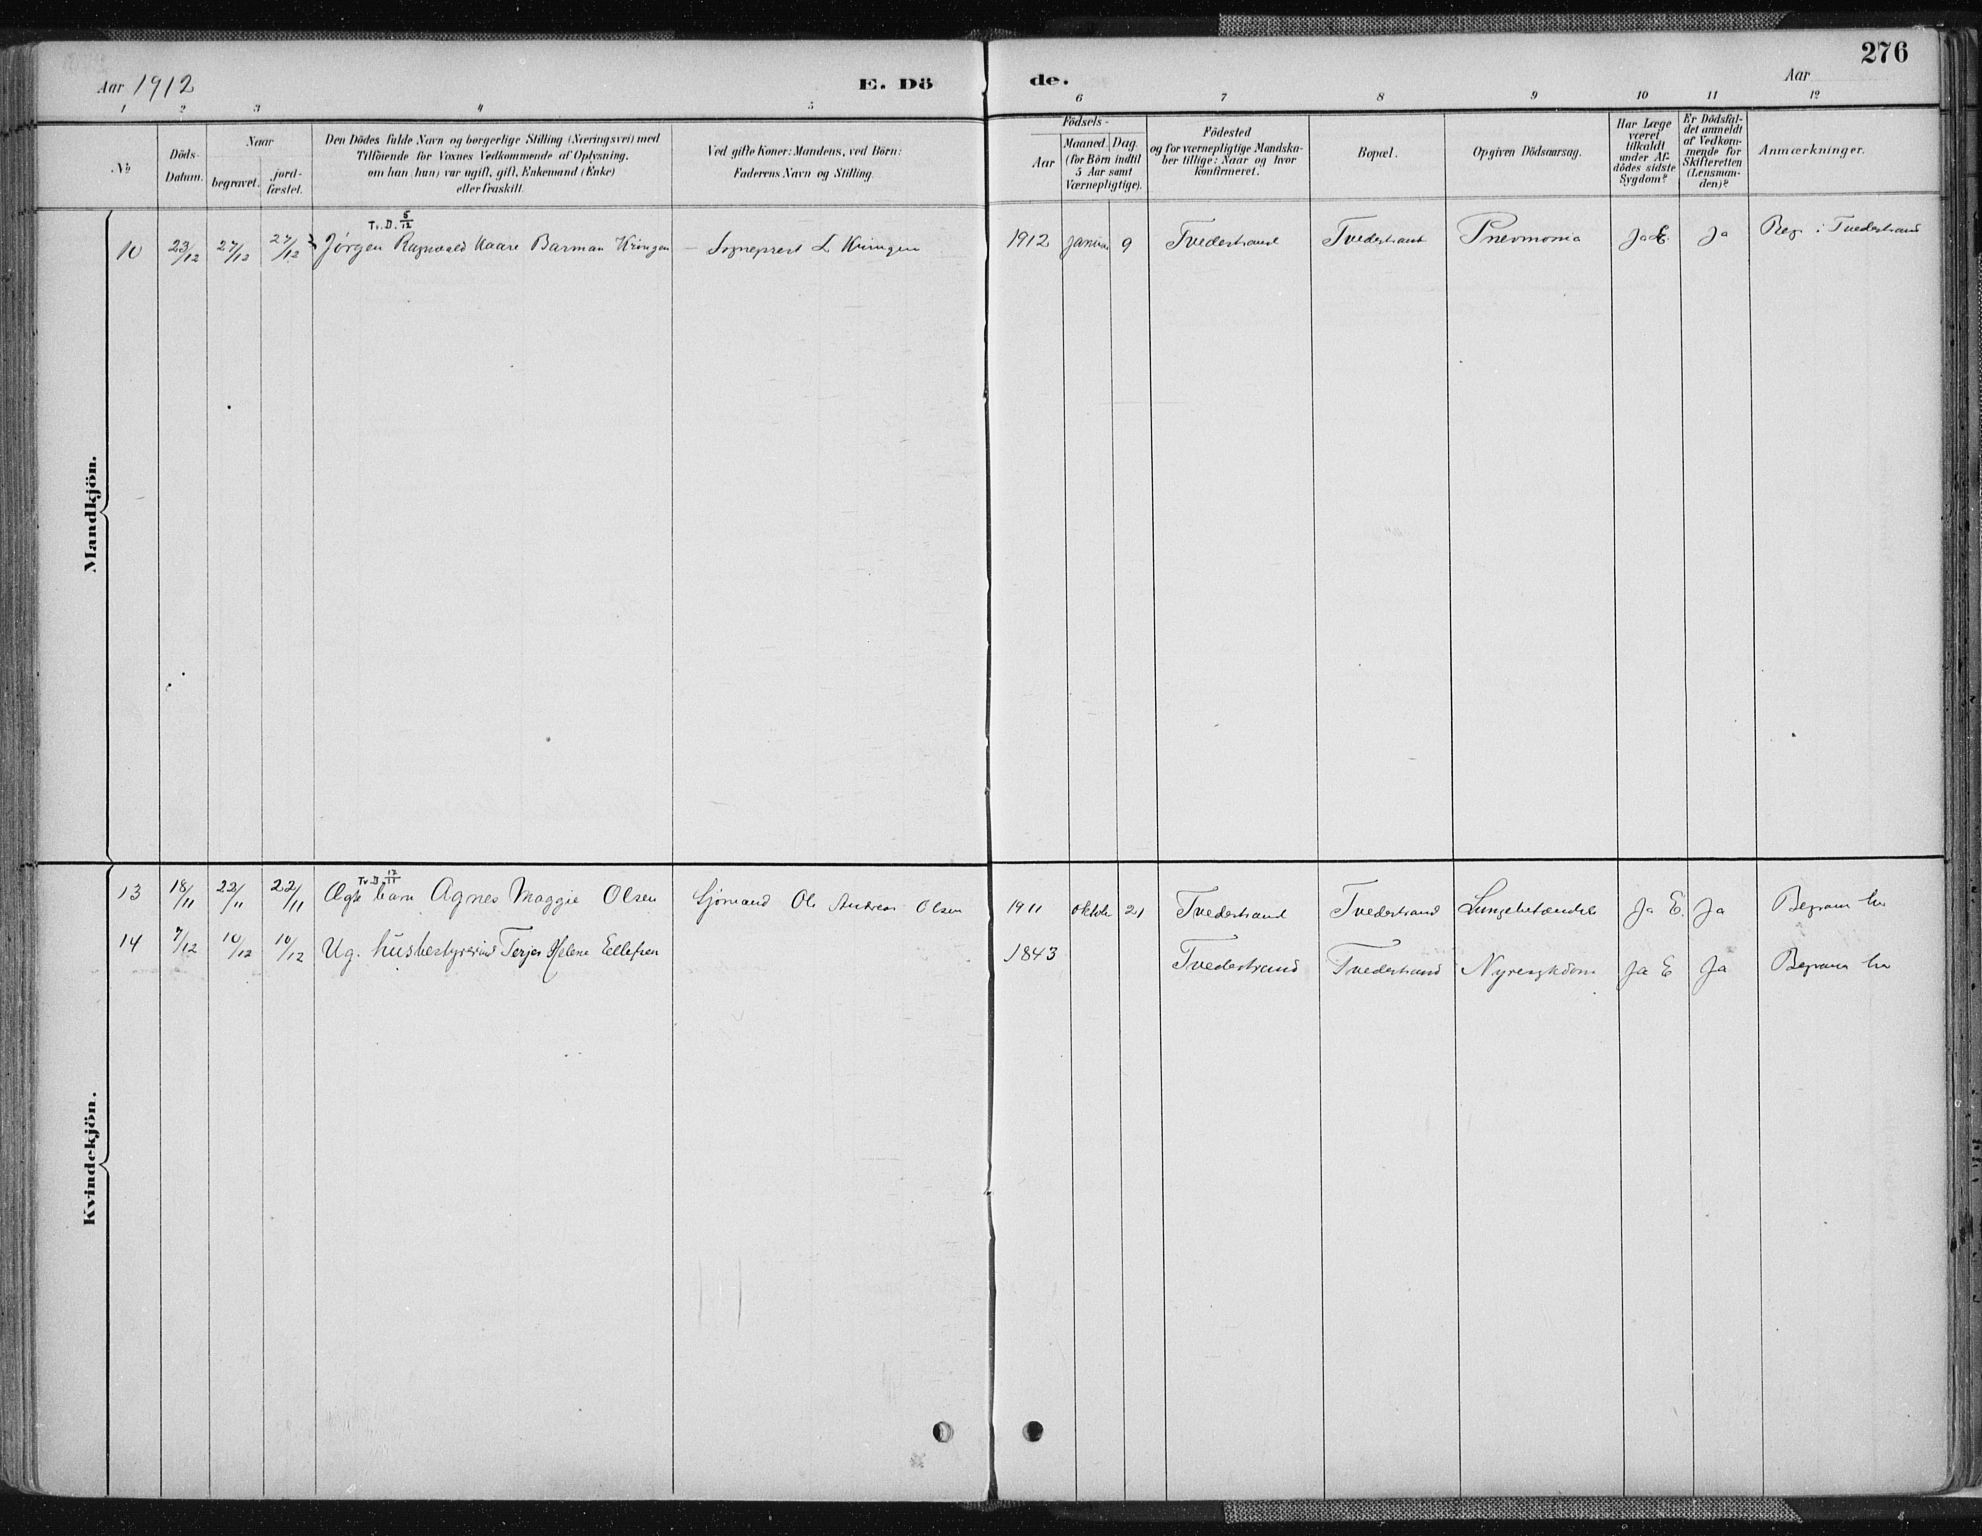 276
Aar 1912 E. Dö de. Aar
1 2 3 4 5 6 7 8 9 10 11 12
№
Döds-Datum.
Naar
begravet.
jord-fæstet.
Den Dödes fulde Navn og borgerlige Stilling (Næringsvei) med
Tilföiende for Voxnes Vedkommende af Oplysning,
om han (hun) var ugift, gift, Enkemand (Enke)
eller fraskilt.
Ved gifte Koner: Mandens, ved Börn:
Faderens Navn og Stilling.
Födsels-
Aar
Maaned. Dag.
(for Börn indtil
5 Aar samt
Værnepligtige).
Födested
og for værnepligtige Mandska-
ber tillige: Naar og hvor
konfirmeret.
Bopæl.
Opgiven Dödsaarsag.
Har Læge
været
tilkaldt
under Af-
dödes sidste
Sygdom?
Er Dödsfal-
det anmeldt
af Vedkom-
mende for
Skifteretten
(Lensman-
den)?
Anmærkninger.
Mandkjön.
Tv. D. 5/12
10 23/12 27/12 27/12 Jørgen Ragnvald Kaare Barman Kringen – Sogneprest L Kringen 1912 Januar 9 Tvedestrand Tvedestrand Pnevmonia Ja E. Ja Begr i Tvedestrand
Kvindekjön.
Tv. D. 17/11
13 18/11 22/11 22/11 Ægte barn Agnes Maggie Olsen Sjömand Ole Andreas Olsen 1911 Oktober 21 Tvedestrand Tvedestrand Lungebetændelse Ja E. Ja Begravet her
14 7/12 10/12 10/12 Ug. husbestyrerinde Terjes Helene Ellefsen 1843 Tvedestrand Tvedestrand Nyresygdom Ja E Ja Begravet her